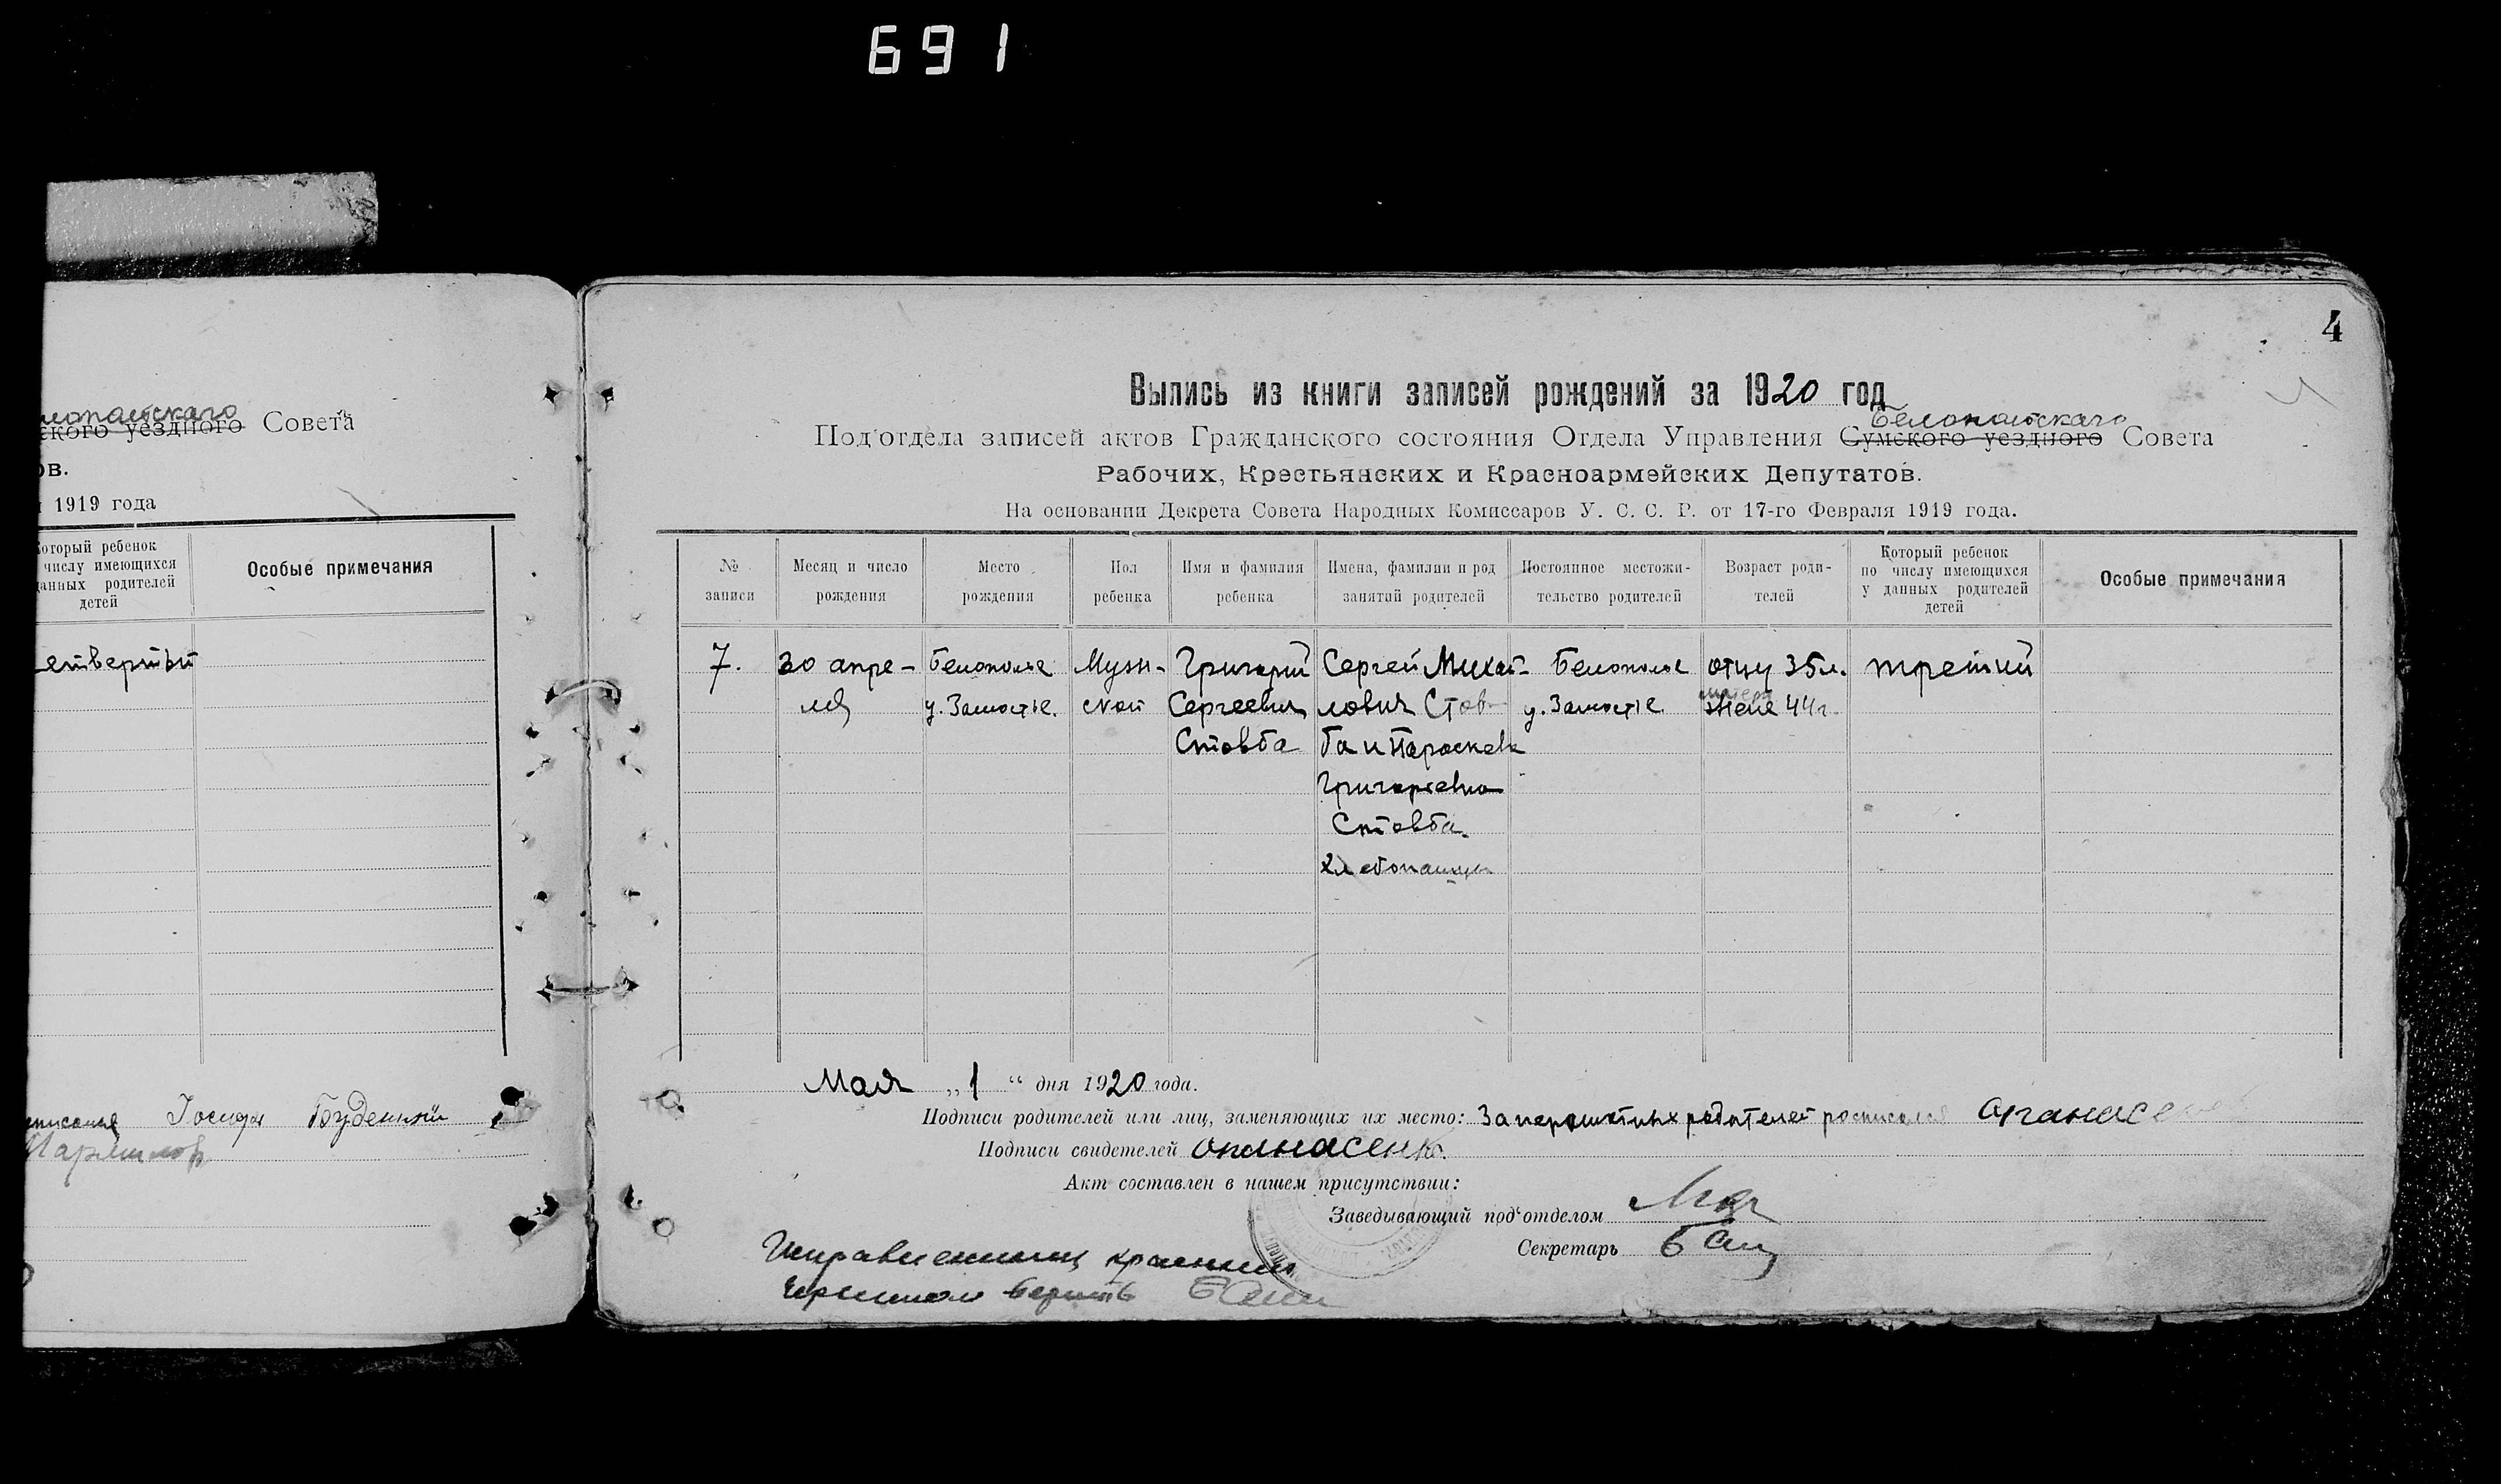 691
Совета
ов.
1919 года
который ребенок
числу имеющихся
данных родителей
детей
Особые примечания
етвертый
Буденный
4
Выпись из книги записей рождений за 1920 год
Белопольского
Под'отдела записей актов Гражданского состояния Отдела Управления Сумского уездного Совета
Рабочих, Крестьянских и Красноармейских Депутатов.
На основании Декрета Совета Народных Комиссаров У. С. С. Р. от 17-го Февраля 1919 года.
№ записи
Месяц и число рождения
Место рождения
Пол ребенка
Имя и фамилия ребенка
Имена, фамилии и род занятий родителей
Постоянное местожи-
тельство родителей
Возраст роди-
телей
Который ребенок
по числу имеющихся
у данных родителей
детей
Особые примечания
7.
30 апре-
ля
Белополье
у. Замостье.
Мужс-
кой
Григорий
Сергеевич
Стовба
Сергей Михай-
лович Стов-
ба и Параскева
Григорьевна
Стовба.
Хлебопашцы
Белополье
у. Замостье
отцу 35 л.
матери
жене 44 г.
третий
Мая „1“ дня 1920 года.
Подписи родителей или лиц, заменяющих их место: За неграмотных родителей росписался Опанасенко
Подписи свидетелей Опанасенко
Акт составлен в нашем присутствии:
Заведывающий под'отделом
Секретарь
красным
чернилом верить